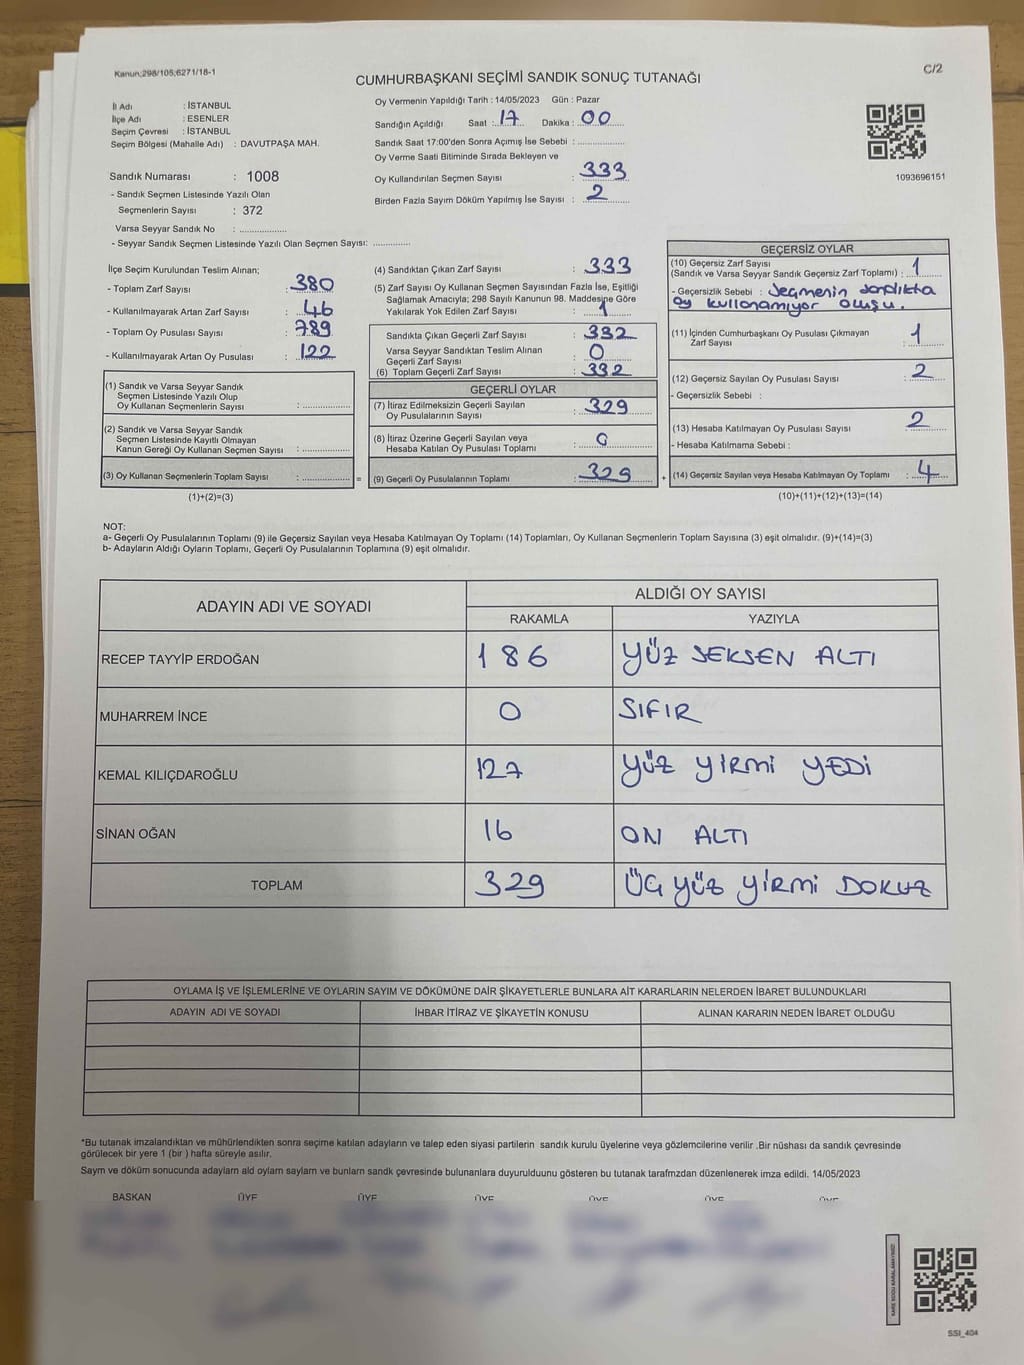 Kanun;298/105;6271/18-1
C/2
CUMHURBAŞKANI SEÇİMİ SANDIK SONUÇ TUTANAĞI
İl Adı : İSTANBUL
İlçe Adı : ESENLER
Seçim Çevresi : İSTANBUL
Seçim Bölgesi (Mahalle Adı) : DAVUTPAŞA MAH.
Sandık Numarası : 1008
- Sandık Seçmen Listesinde Yazılı Olan
Seçmenlerin Sayısı : 372
Varsa Seyyar Sandık No : ................
- Seyyar Sandık Seçmen Listesinde Yazılı Olan Seçmen Sayısı: ............
Oy Vermenin Yapıldığı Tarih : 14/05/2023 Gün : Pazar
Sandığın Açıldığı Saat : 17 Dakika : 00
Sandık Saat 17:00'den Sonra Açımış İse Sebebi : ................
Oy Verme Saati Bitiminde Sırada Bekleyen ve
Oy Kullandırılan Seçmen Sayısı : 333
Birden Fazla Sayım Döküm Yapılmış İse Sayısı : 2
1093696151
İlçe Seçim Kurulundan Teslim Alınan;
- Toplam Zarf Sayısı : 380
- Kullanılmayarak Artan Zarf Sayısı : 46
- Toplam Oy Pusulası Sayısı : 789
- Kullanılmayarak Artan Oy Pusulası : 122
(1) Sandık ve Varsa Seyyar Sandık
Seçmen Listesinde Yazılı Olup
Oy Kullanan Seçmenlerin Sayısı : ................
(2) Sandık ve Varsa Seyyar Sandık
Seçmen Listesinde Kayıtlı Olmayan
Kanun Gereği Oy Kullanan Seçmen Sayısı : ................
(3) Oy Kullanan Seçmenlerin Toplam Sayısı : ................ =
(1)+(2)=(3)
(4) Sandıktan Çıkan Zarf Sayısı : 333
(5) Zarf Sayısı Oy Kullanan Seçmen Sayısından Fazla İse, Eşitliği
Sağlamak Amacıyla; 298 Sayılı Kanunun 98. Maddesine Göre
Yakılarak Yok Edilen Zarf Sayısı : 1
Sandıkta Çıkan Geçerli Zarf Sayısı : 332
Varsa Seyyar Sandıktan Teslim Alınan
Geçerli Zarf Sayısı : 0
(6) Toplam Geçerli Zarf Sayısı : 332
GEÇERLİ OYLAR
(7) İtiraz Edilmeksizin Geçerli Sayılan
Oy Pusulalarının Sayısı : 329
(8) İtiraz Üzerine Geçerli Sayılan veya
Hesaba Katılan Oy Pusulası Toplamı : 0
(9) Geçerli Oy Pusulalarının Toplamı : 329 +
GEÇERSİZ OYLAR
(10) Geçersiz Zarf Sayısı
(Sandık ve Varsa Seyyar Sandık Geçersiz Zarf Toplamı) : 1
- Geçersizlik Sebebi : Seçmenin sandıkta
oy kullanamıyor oluşu.
(11) İçinden Cumhurbaşkanı Oy Pusulası Çıkmayan
Zarf Sayısı : 1
(12) Geçersiz Sayılan Oy Pusulası Sayısı : 2
- Geçersizlik Sebebi :
(13) Hesaba Katılmayan Oy Pusulası Sayısı : 2
- Hesaba Katılmama Sebebi :
(14) Geçersiz Sayılan veya Hesaba Katılmayan Oy Toplamı : 4
(10)+(11)+(12)+(13)=(14)
NOT:
a- Geçerli Oy Pusulalarının Toplamı (9) ile Geçersiz Sayılan veya Hesaba Katılmayan Oy Toplamı (14) Toplamları, Oy Kullanan Seçmenlerin Toplam Sayısına (3) eşit olmalıdır. (9)+(14)=(3)
b- Adayların Aldığı Oyların Toplamı, Geçerli Oy Pusulalarının Toplamına (9) eşit olmalıdır.
ADAYIN ADI VE SOYADI ALDIĞI OY SAYISI
RAKAMLA YAZIYLA
RECEP TAYYİP ERDOĞAN 186 YÜZ SEKSEN ALTI
MUHARREM İNCE 0 SIFIR
KEMAL KILIÇDAROĞLU 127 YÜZ YİRMİ YEDİ
SİNAN OĞAN 16 ON ALTI
TOPLAM 329 ÜÇ YÜZ YİRMİ DOKUZ
OYLAMA İŞ VE İŞLEMLERİNE VE OYLARIN SAYIM VE DÖKÜMÜNE DAİR ŞİKAYETLERLE BUNLARA AİT KARARLARIN NELERDEN İBARET BULUNDUKLARI
ADAYIN ADI VE SOYADI İHBAR İTİRAZ VE ŞİKAYETİN KONUSU ALINAN KARARIN NEDEN İBARET OLDUĞU
*Bu tutanak imzalandıktan ve mühürlendikten sonra seçime katılan adayların ve talep eden siyasi partilerin sandık kurulu üyelerine veya gözlemcilerine verilir .Bir nüshası da sandık çevresinde
görülecek bir yere 1 (bir ) hafta süreyle asılır.
Sayım ve döküm sonucunda adayların ald oylam saylam ve bunlarn sandk çevresinde bulunanlara duyurulduunu gösteren bu tutanak tarafmzdan düzenlenerek imza edildi. 14/05/2023
BAŞKAN ÜYE ÜYE ÜYE ÜYE ÜYE ÜYE
KARE KODU KARALAMAYINIZ!
SSI_404